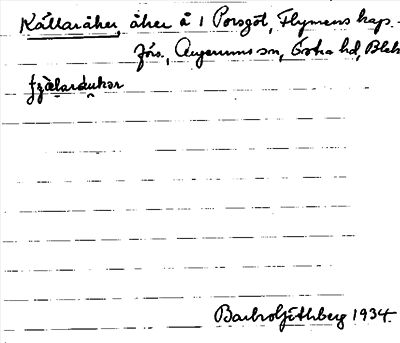 Källaråker, åker å 1 Porsgöl, Flymens kap-
förs., Augerums sn, Östra hd, Blek
Barbro Göthberg 1934.